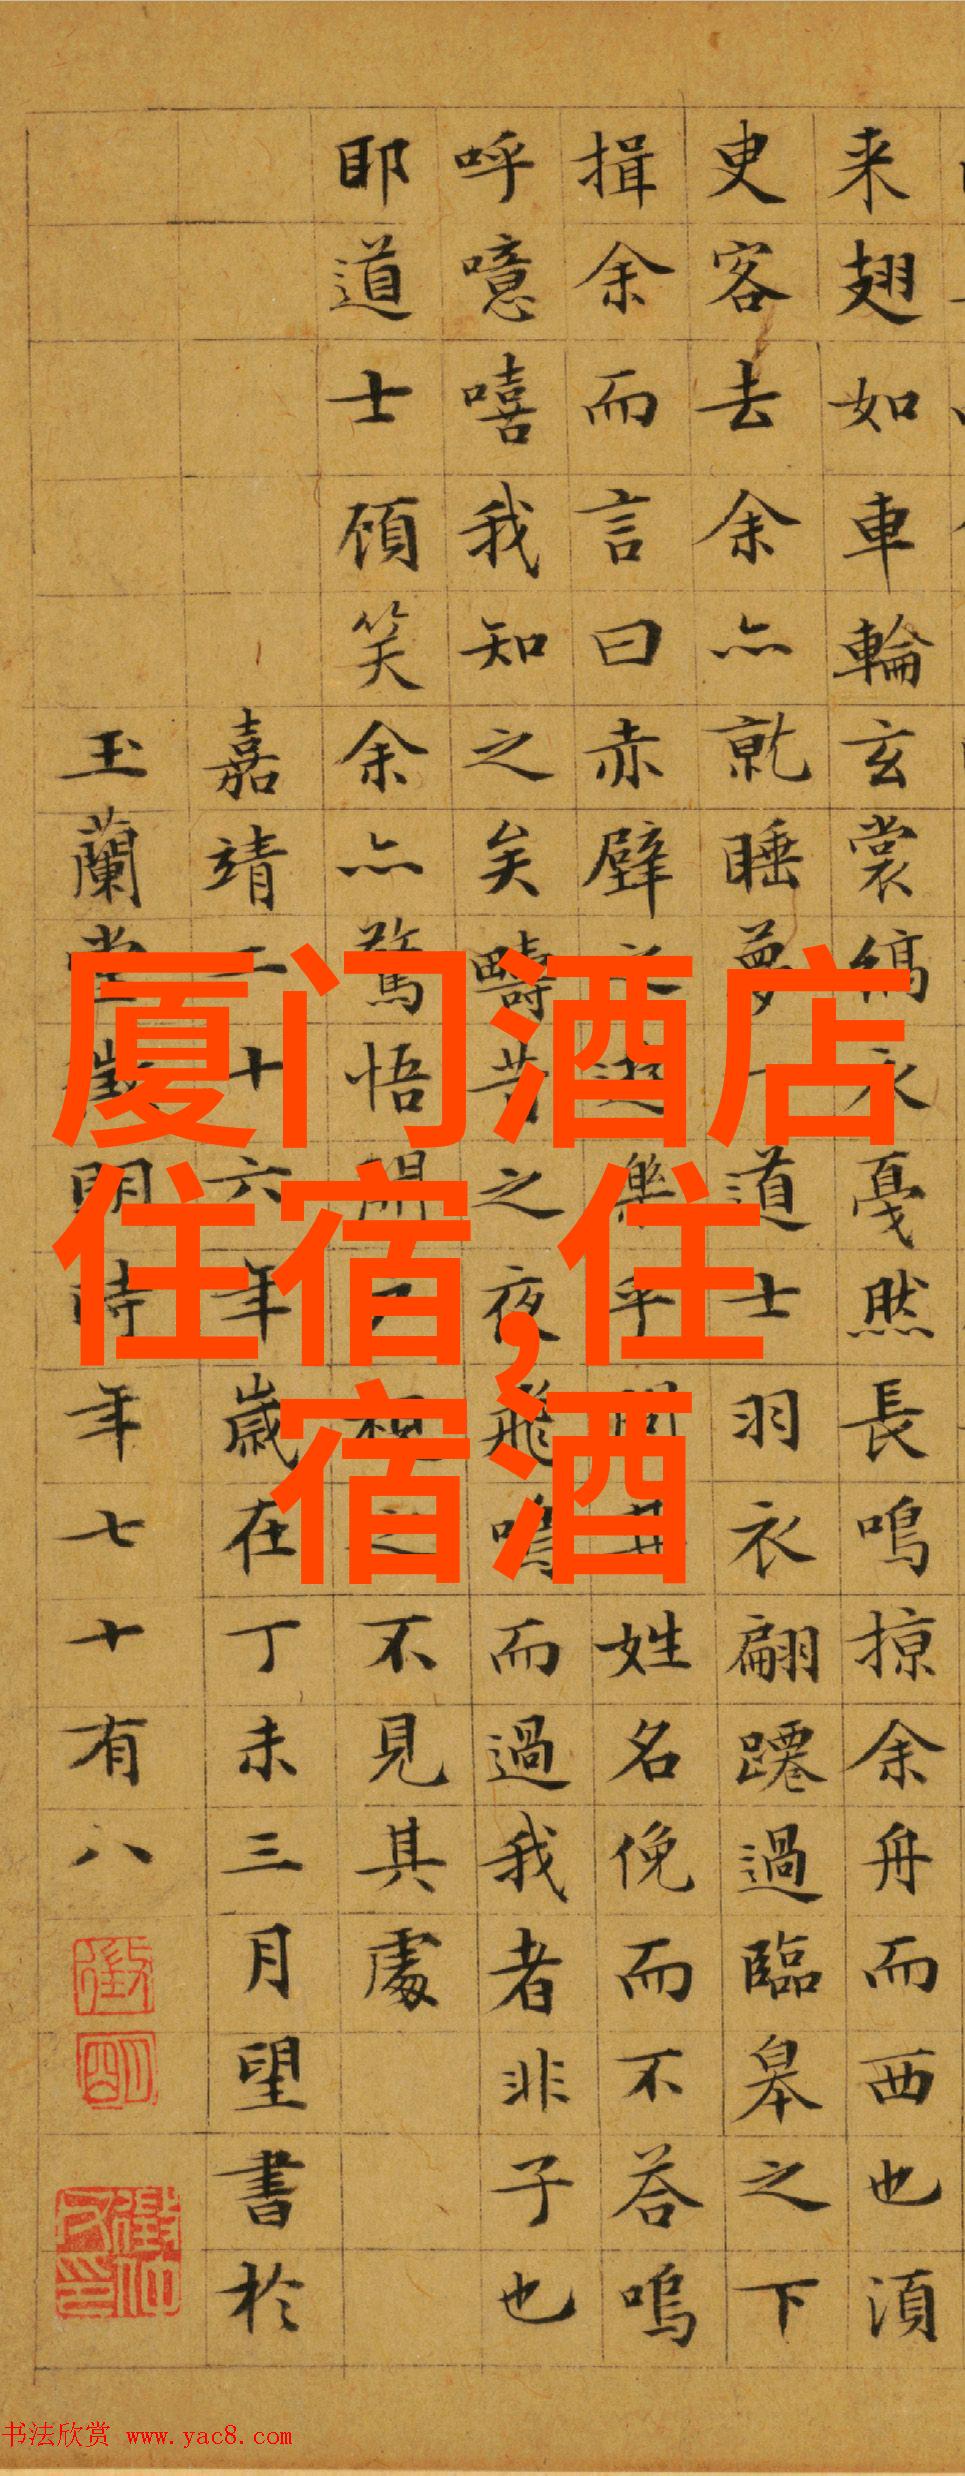 来翅如車輪玄裳縞衣戛然長鳴掠余舟而西也湏
臾客去余亦就睡夢一道士羽衣翩躚過臨皋之下
揖余而言曰赤壁之遊樂乎問其姓名俛而不荅嗚
呼噫嘻我知之矣疇昔之夜飛鳴而過我者非子也
耶道士顧笑余亦驚悟開戶視之不見其處
嘉靖二十六年歲在丁未三月望書於
玉蘭堂徵明時年七十有八
徵
明
厦门酒店
住宿,住
宿酒
书法欣赏 www.yac8.com